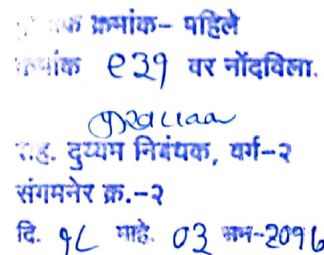 क्रमांक- पहिले
क्रमांक ९३१ वर नोंदविला.
सह. दुय्यम निबंधक, वर्ग-२
संगमनेर क्र.-२
दि. १८ माहे. ०३ सन-२०१६